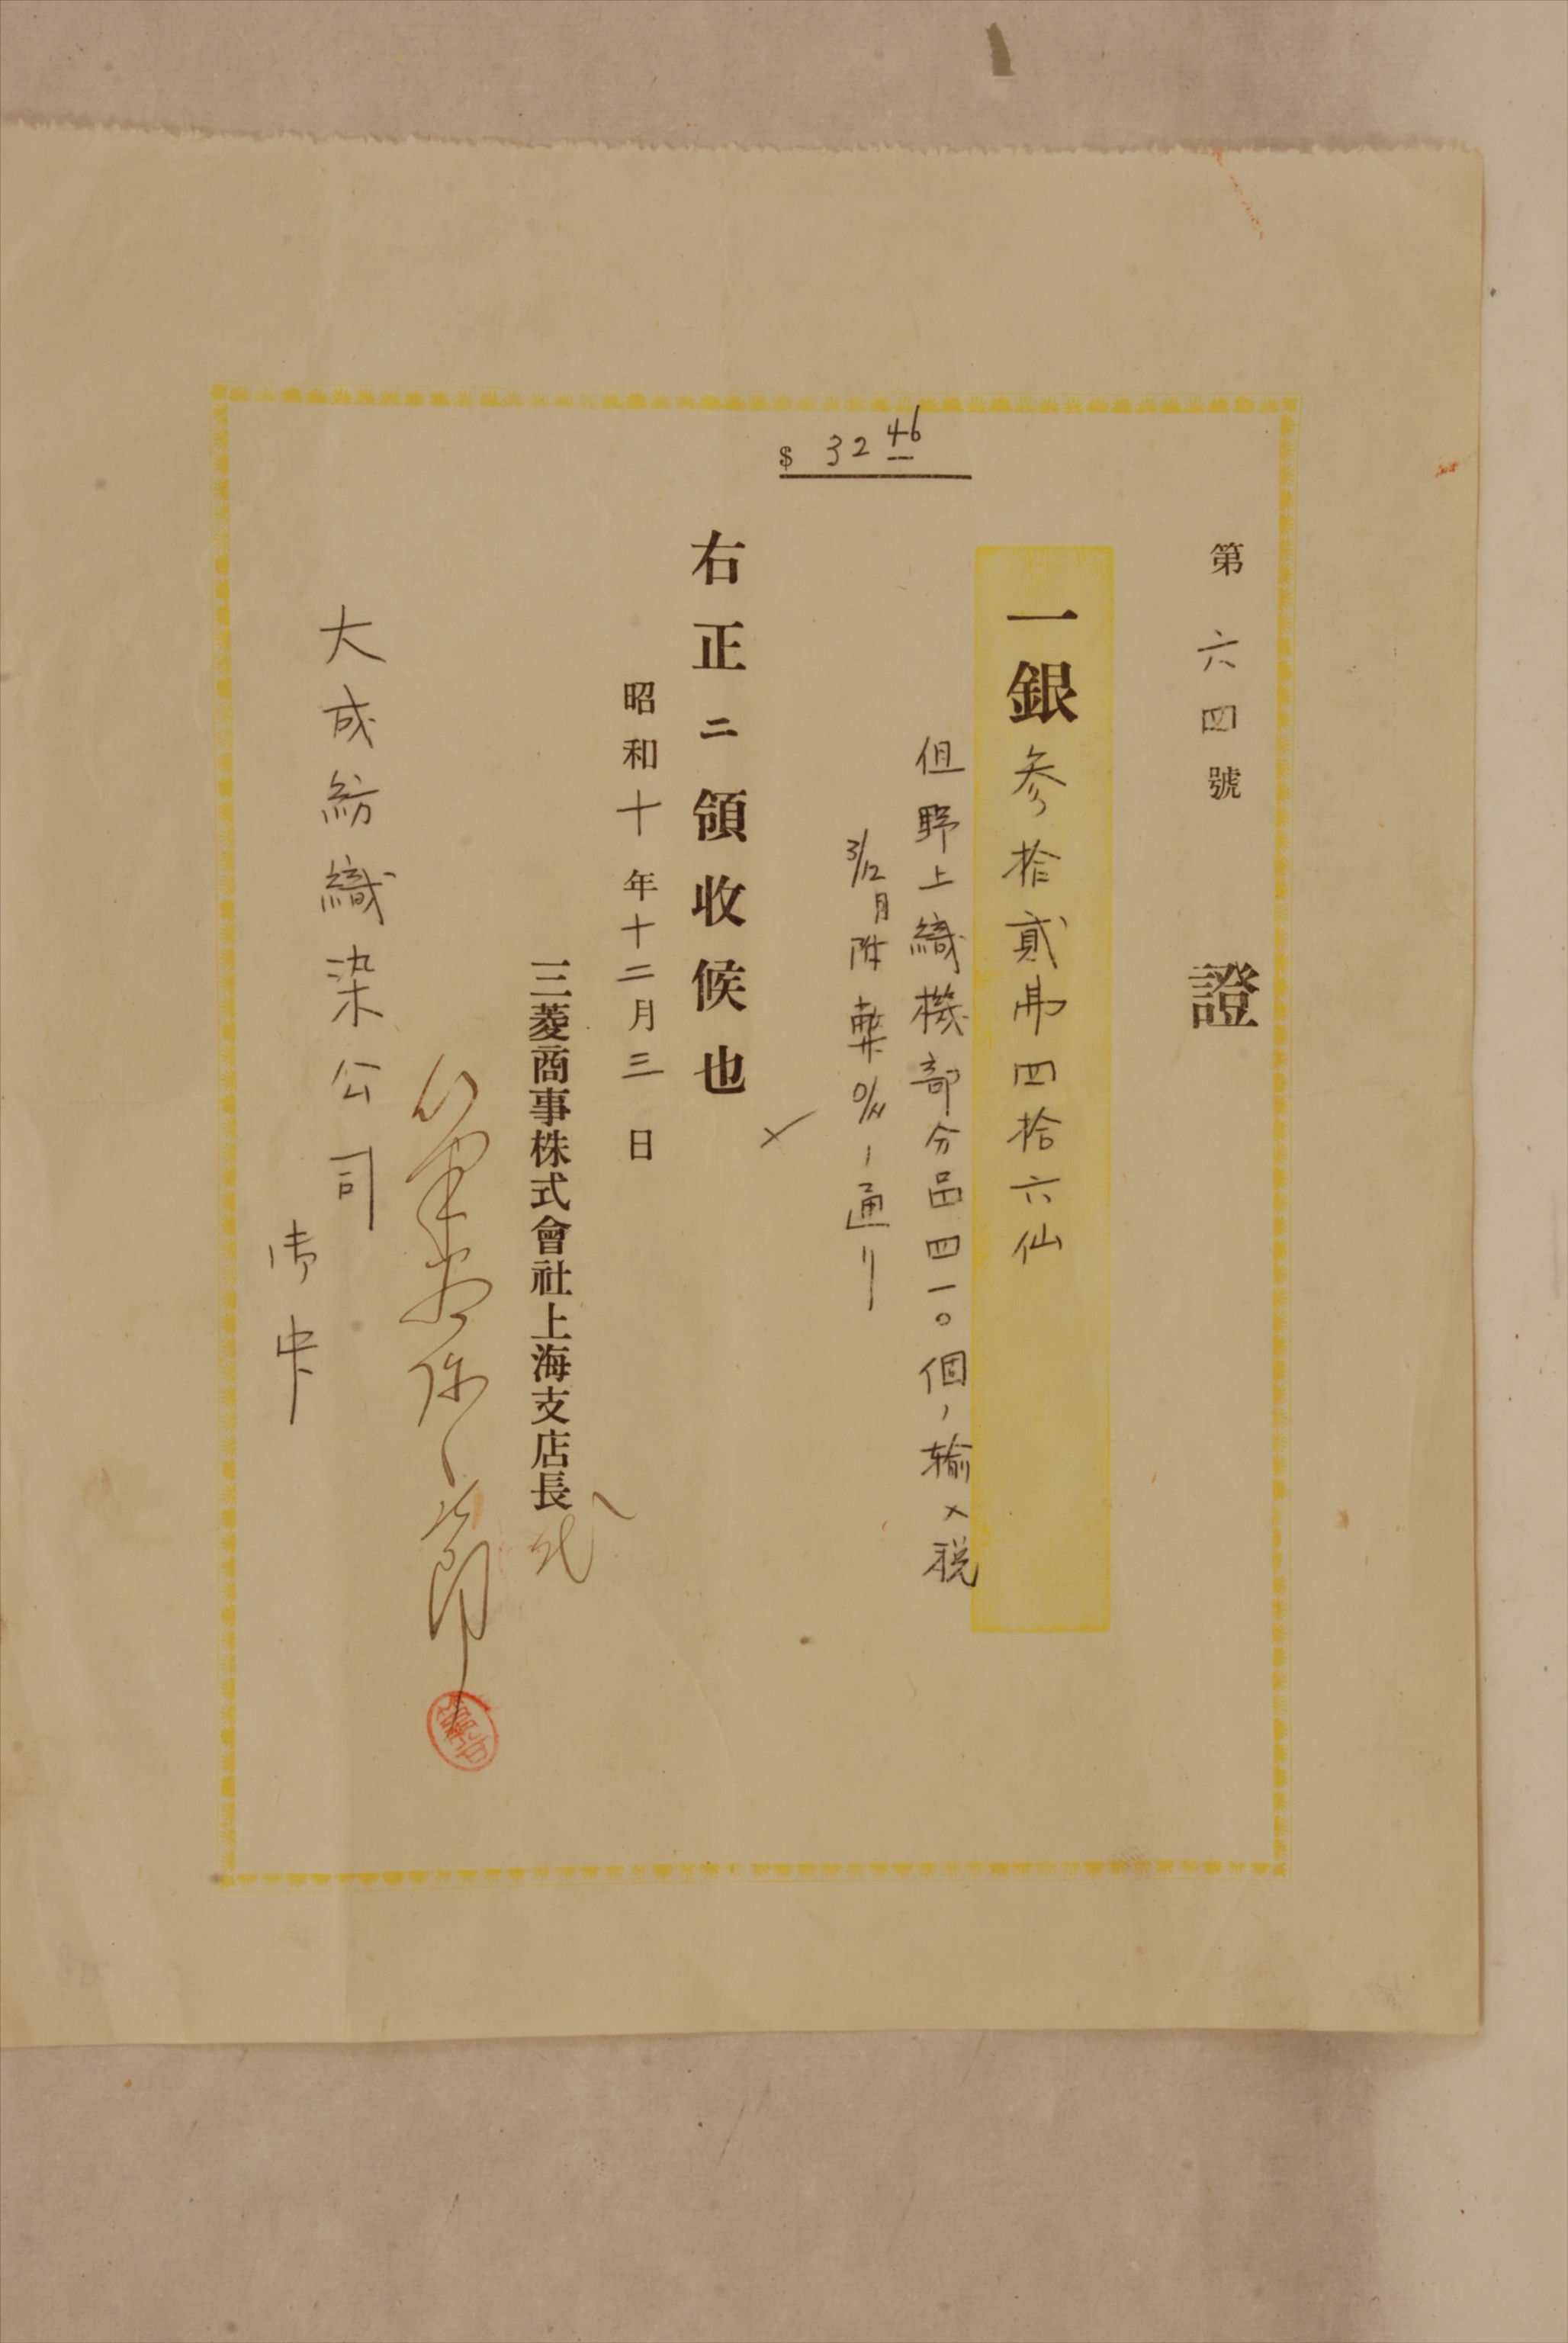 第六四號
證
一銀参拾貳弗四拾六仙
但野上織機部分品四一〇個ノ輸入税
3/12月附
通リ
$ 32 46
右正ニ領收候也
昭和十年十二月三日
三菱商事株式會社上海支店長代
大成紡織染公司
御中